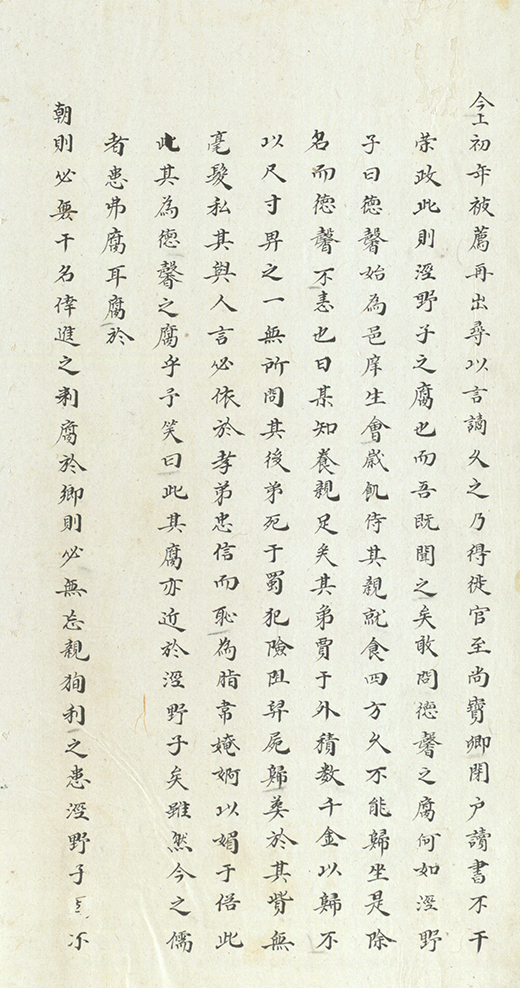 今上初年被薦再出尋以言謫久之乃得徙官至尚寶卿閉户讀書不干
荣政此則涇野子之腐也而吾既聞之矣敢問德馨之腐何如涇野
子曰德馨始為邑庠生會歲飢侍其親就食四方久不能歸坐是除
名而德馨不恚也曰某知養親足矣其弟賈于外積数千金以歸不
以尺寸畀之一無所問其後弟死于蜀犯險阻舁屍歸葬於其貲無
毫髮私其與人言必依於孝弟忠信而恥為脂韋媕婀以媚于俗此
此其為德馨之腐乎予笑曰此其腐亦近於涇野子矣雖然今之儒
者患弗腐耳腐於
朝則必無干名倖進之刺腐於鄉則必無忘親狥利之患涇野子